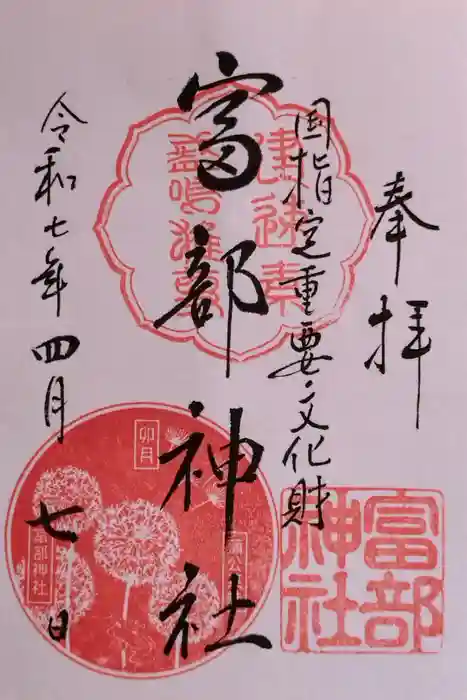 奉拝
国指定重要文化財
富部神社
令和七年四月七日
建速素
盞嗚雄尊
卯月
富部神社
蒲公英
富部
神社